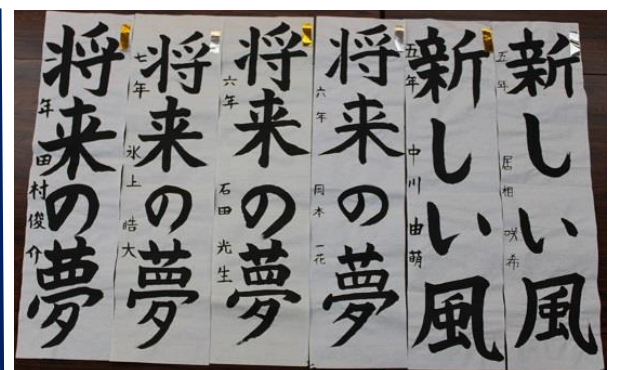 新しい風
五年 居相 咲希
新しい風
五年 中川 由萌
将来の夢
六年 岡本 一花
将来の夢
六年 石田 光生
将来の夢
七年 氷上 皓大
将来の夢
年 田村俊介